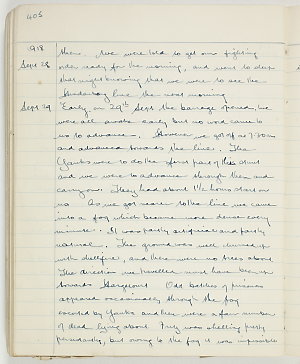 405
1918
Sept 28 then. We were told to get our fighting
order ready for the morning, and went to sleep
that night knowing that we were to see the
Hindenburg line the next morning.
Sept 29 Early on 29th Sept the barrage opened, we
were all awake early but no word came to
us to advance. However we got off at 7.30am
and advanced towards the line. The
Yanks were to do the first part of this stunt
and we were to advance through them and
carry on. They had about 1½ hours start on
us. As we got nearer to the line we came
into a fog which became more dense every
minute. It was partly artificial and partly
natural. The ground was well churned up
with shellfire, and there were no trees about.
The direction we travelled must have been
towards Hargicourt. Odd batches of prisoners
appeared occasionally through the fog
escorted by Yanks and there were a fair number
of dead lying about. Fritz was shelling pretty
persistently, but owing to the fog it was impossible